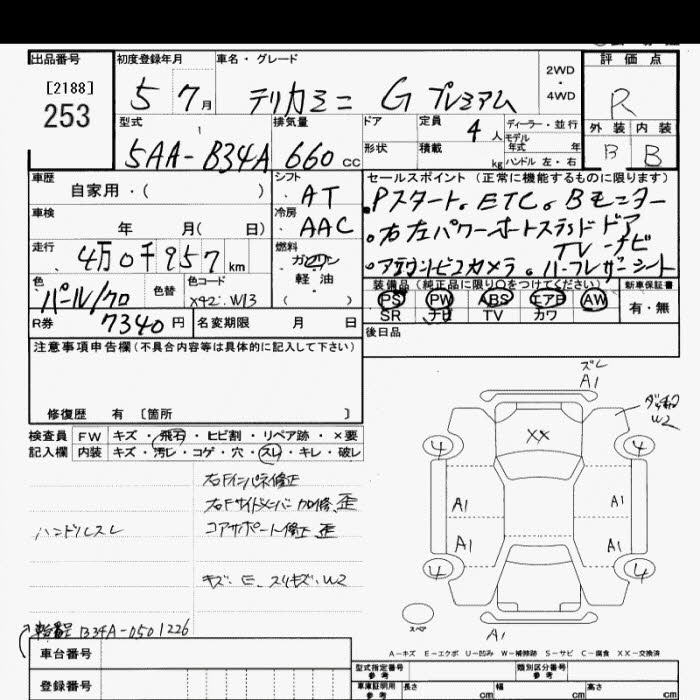 出品番号
[2188]
253
初度登録年月
5 7月
車名・グレード
デリカミニ G プレミアム
2WD
・
4WD
評価点
R
外装 内装
B B
型式
5AA-B34A
排気量
660 CC
ドア
形状
定員
4人
積載
kg
ディーラー・並行
モデル年式 年
ハンドル 左・右
車歴
自家用・( )
シフト
AT
セールスポイント (正常に機能するものに限ります)
・Pスタート。ETC。Bモニター
・右左パワーオートスライドドア
TVナビ
・アラウンドビューカメラ。ハーフレザーシート
車検
年 月( 日)
冷房
AAC
走行
4万0千957km
燃料
ガソリン
軽油
( )
色
パール/クロ
色替
色コード
X42. W13
装備品 (純正品に限り○をつけてください)
PS PW ABS エアB AW
SR ナビ TV カワ
新車保証書
有・無
R券
7340円
名変期限 月 日
後日品
注意事項申告欄 (不具合内容等は具体的に記入して下さい)
修復歴 有 [箇所 ]
検査員記入欄
FW キズ・飛石・ヒビ割・リペア跡・×要
内装 キズ・汚レ・コゲ・穴・スレ・キレ・破レ
右Fインパネ修正
右Fサイドメンバー加修、歪
ハンドルスレ
コアサポート修正、歪
キズ・E、スリキズ・W2
車台番号 B34A-0501226
車台番号
登録番号
ズレ
A1
XX
W2
4 4
A1 A1
A1 A1
4 4
スペア
A1
A-キズ E-エクボ U-凹み W-補修跡 S-サビ C-腐食 XX-交換済
型式指定番号
参考
類別区分番号
参考
車庫証明用
参考
長さ cm
幅 cm
高さ cm